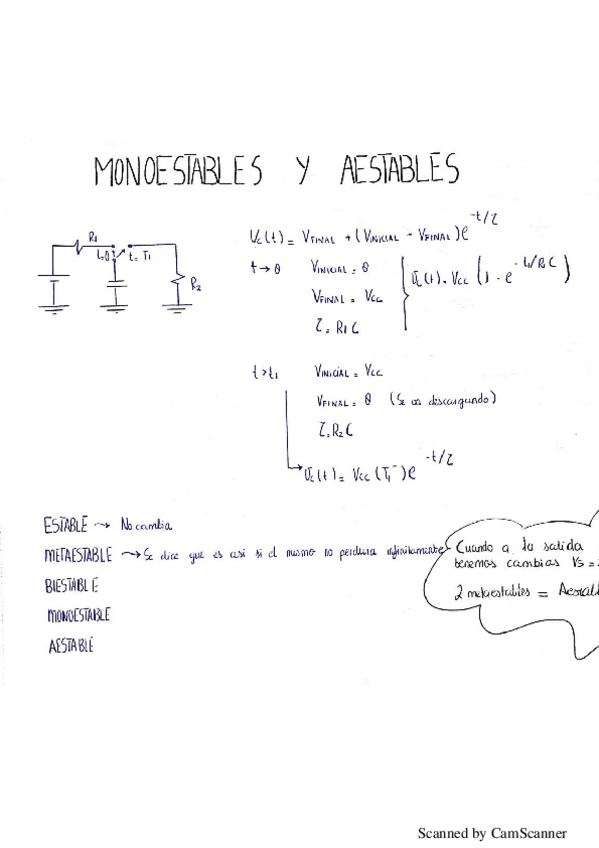 MONOESTABLES Y AESTABLES
R1
t=0 t=T1
R2
Uc(t) = VFINAL + (VINICIAL - VFINAL)e^-t/τ
t→0 VINICIAL = 0
VFINAL = Vcc
τ = R1C
Uc(t) = Vcc (1 - e^-t1/R1C)
t>t1 VINICIAL = Vcc
VFINAL = 0 (Se va descargando)
τ = R2C
Uc(t) = Vcc (T1-)e^-t/τ
ESTABLE → No cambia
METAESTABLE → Se dice que es así si el mismo no perdura infinitamente
BIESTABLE
MONOESTABLE
AESTABLE
Cuando a la salida
tenemos cambios Vs =
2 metaestables =
Scanned by CamScanner